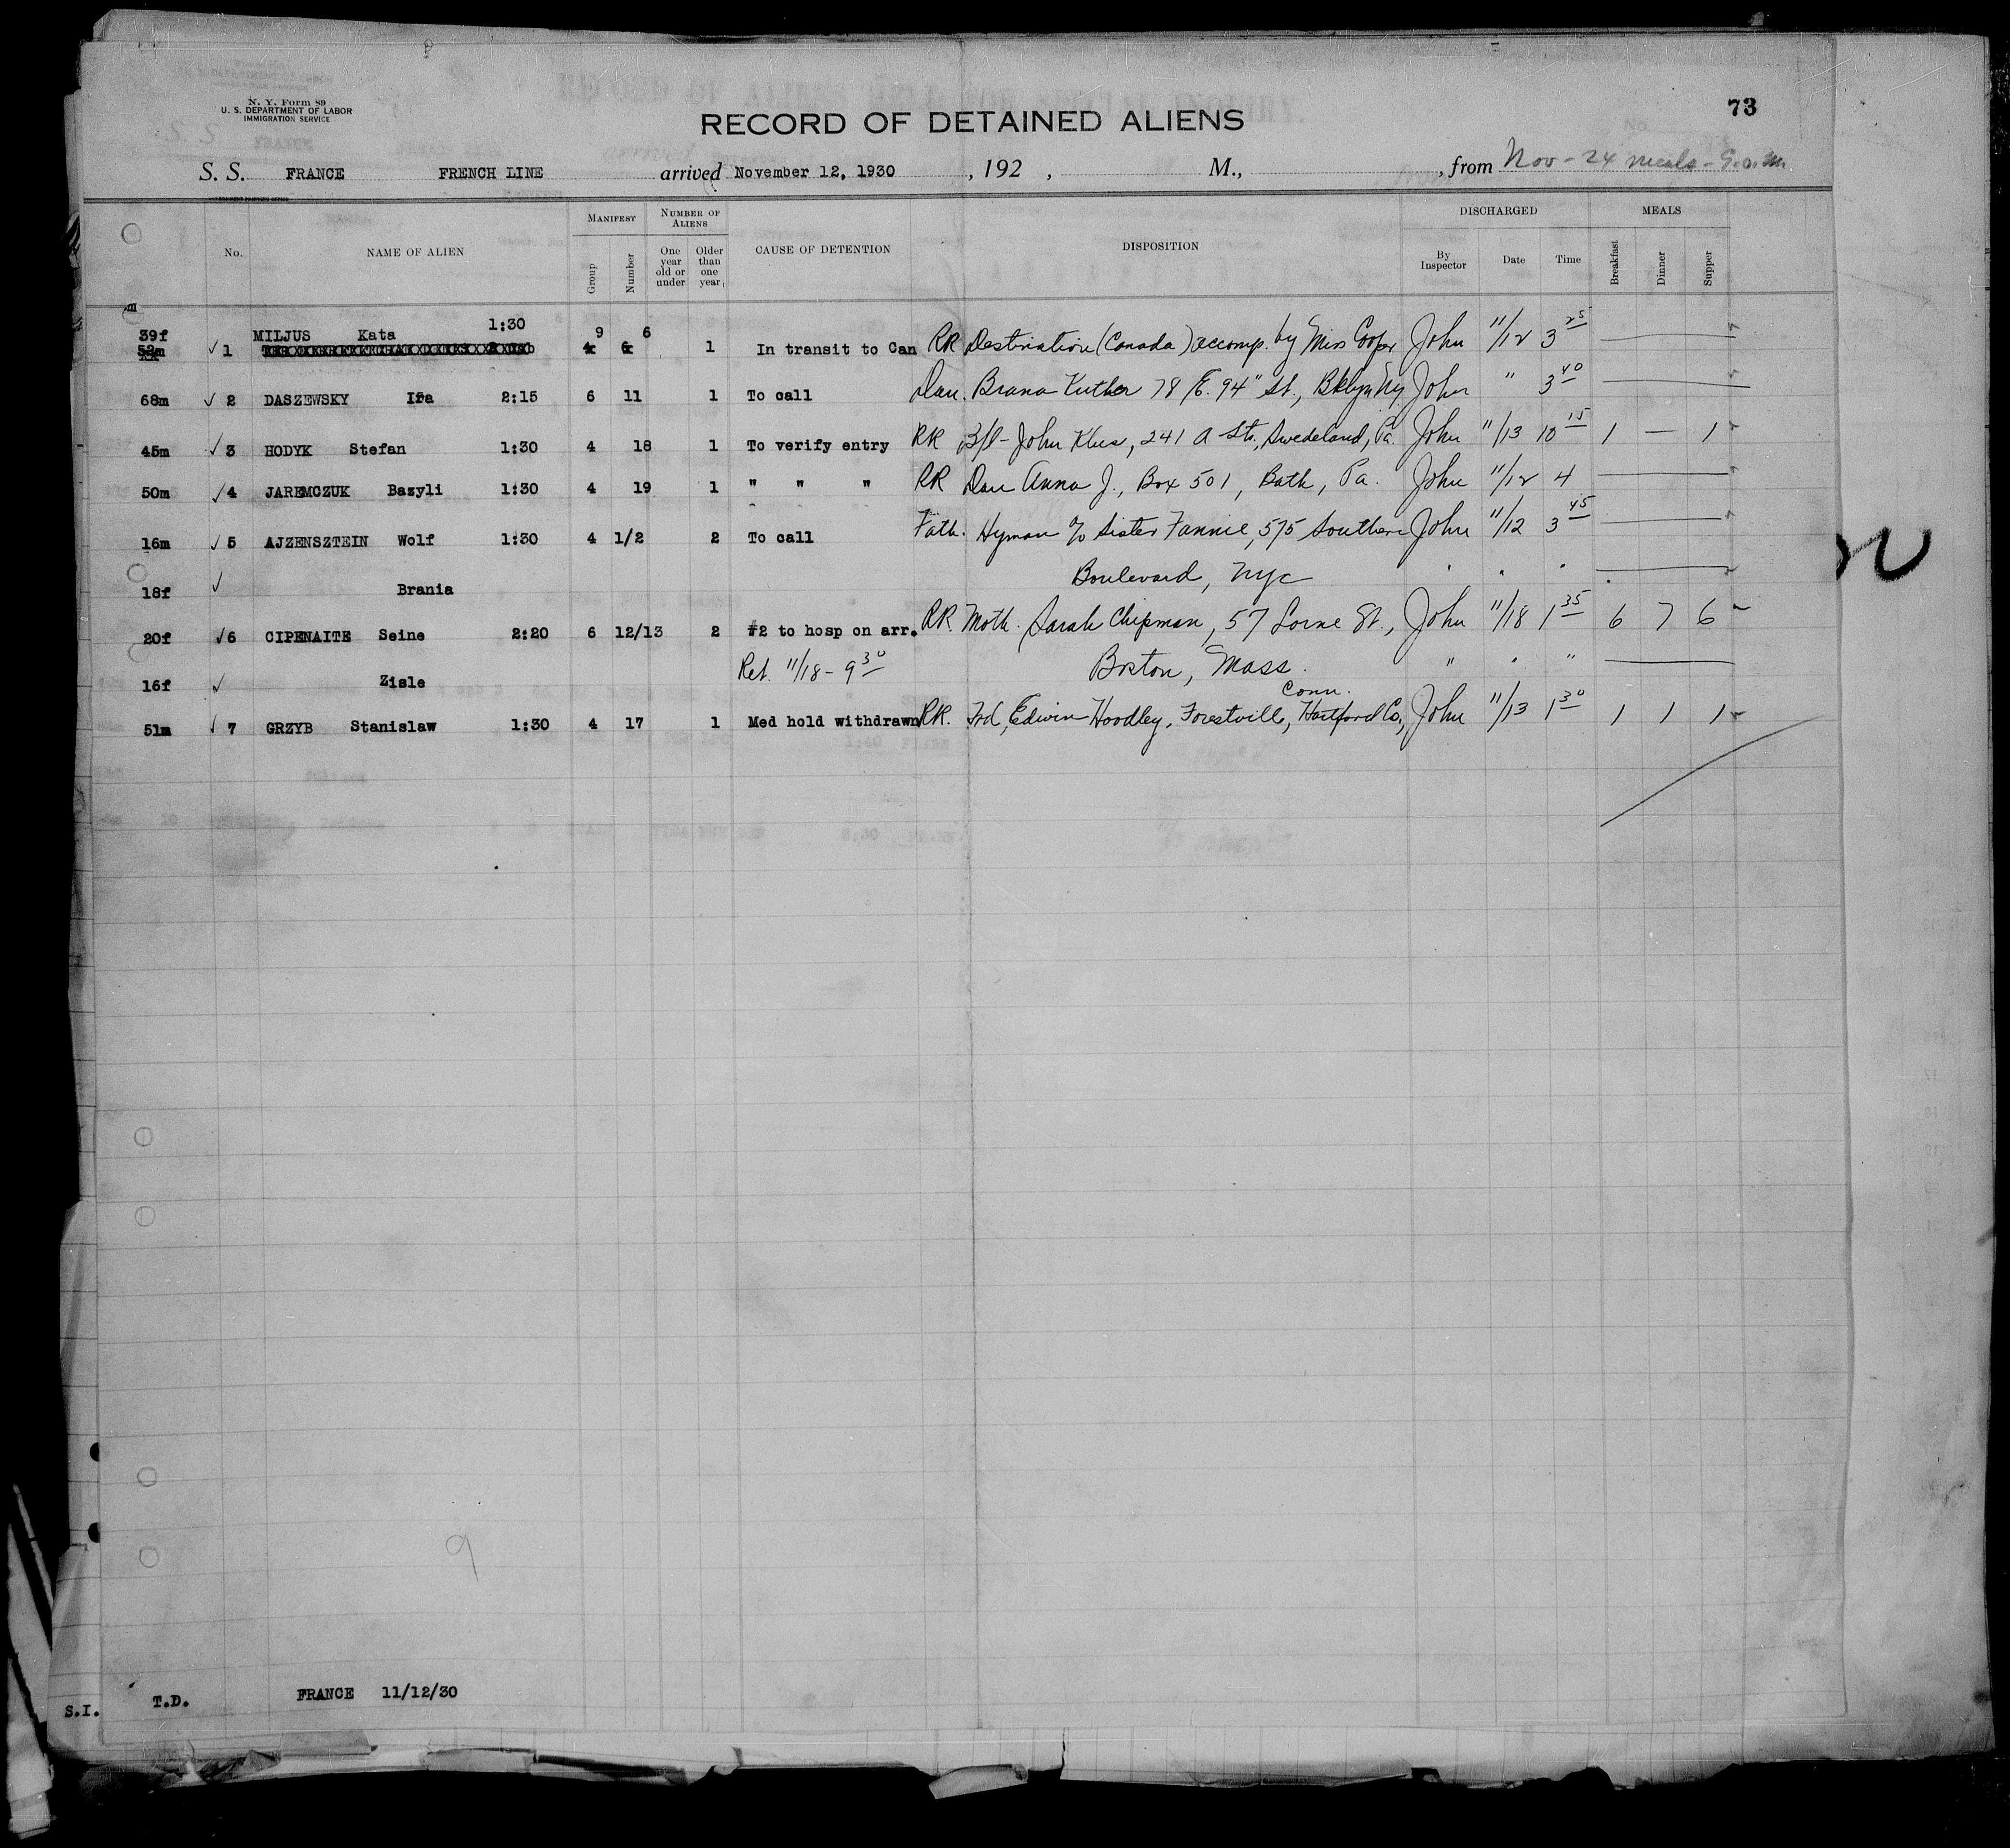 N. Y. Form 89
U. S. DEPARTMENT OF LABOR
IMMIGRATION SERVICE
73
RECORD OF DETAINED ALIENS
S. S. FRANCE FRENCH LINE arrived November 12, 1930, 192 , M., , from Nov - 24 meals - G.O.M.
No. NAME OF ALIEN MANIFEST Group Number NUMBER OF ALIENS One year old or under Older than one year CAUSE OF DETENTION DISPOSITION DISCHARGED By Inspector Date Time MEALS Breakfast Dinner Supper
39f ✓ 1 MILJUS Kata 1:30 9 6 1 In transit to Can RR Destination (Canada) accomp. by Miss Cooper John 11/12 3 25
68m ✓ 2 DASZEWSKY 2:15 6 11 1 To call Dau. Brana 78 E. 94" St., Bklyn Ny John " 3 40
45m ✓ 3 HODYK Stefan 1:30 4 18 1 To verify entry RR B/l - John Klus, 241 A St., Swedeland, Pa. John 11/13 10 15 1 — 1
50m ✓ 4 JAREMCZUK Bazyli 1:30 4 19 1 " " " RR Dau Anna J., Box 501, Bath, Pa. John 11/12 4
16m ✓ 5 AJZENSZTEIN Wolf 1:30 4 1/2 2 To call Fath. Hyman c/o Sister Fannie, 575 Southern John 11/12 3 45
18f ✓ Brania Boulevard, Nyc " " "
20f ✓ 6 CIPENAITE Seine 2:20 6 12/13 2 #2 to hosp on arr. RR. Moth. Sarah Chipman, 57 Lorne St., John 11/18 1 35 6 7 6
16f ✓ Zisle Ret. 11/18 - 9 30 Boston, Mass. " " "
51m ✓ 7 GRZYB Stanislaw 1:30 4 17 1 Med hold withdrawn RR. Frd, Edwin Hoodley, Forestville, Hartford Co., Conn. John 11/13 1 30 1 1 1
9
S.I. T.D. FRANCE 11/12/30